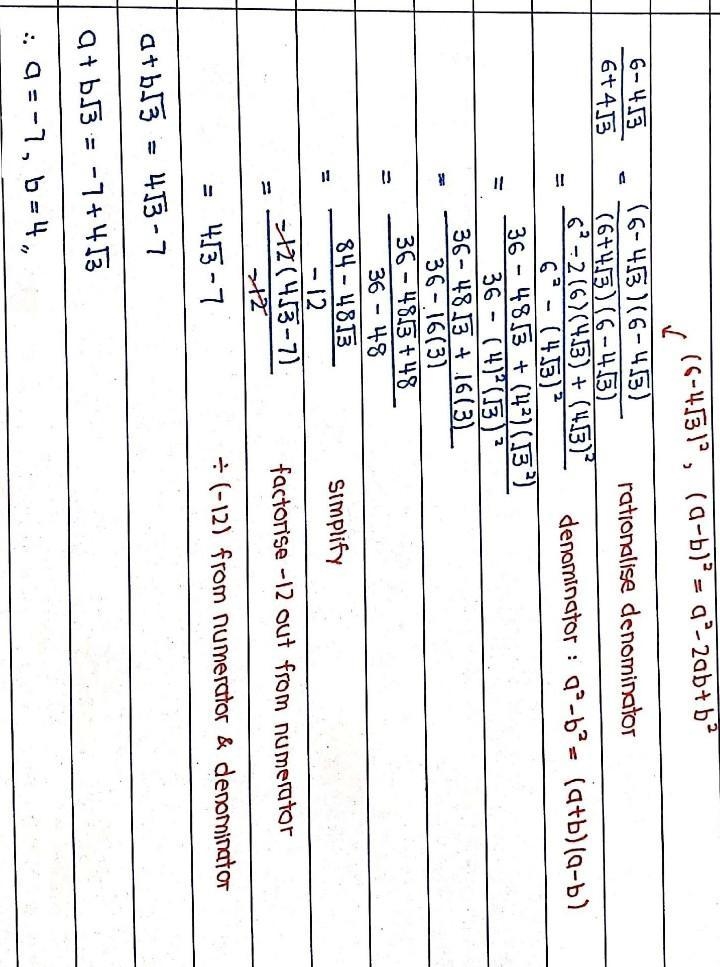 (6-4√3)², (a-b)² = a²-2ab+b²
(6-4√3)/(6+4√3) = (6-4√3)(6-4√3)/(6+4√3)(6-4√3) rationalise denominator
= (6²-2(6)(4√3)+(4√3)²)/(6²-(4√3)²) denominator : a²-b² = (a+b)(a-b)
= (36-48√3+(4²)(√3²))/(36-(4)²(√3)²)
= (36-48√3+16(3))/(36-16(3))
= (36-48√3+48)/(36-48)
= (84-48√3)/(-12) simplify
= -12(4√3-7)/(-12) factorise -12 out from numerator
= 4√3-7 ÷(-12) from numerator & denominator
a+b√3 = 4√3-7
a+b√3 = -7+4√3
∴ a=-7, b=4,,